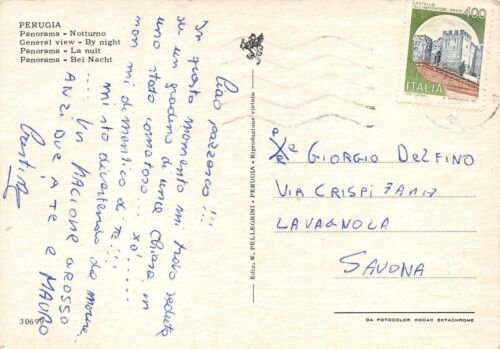 PERUGIA
Panorama - Notturno
General view - By night
Panorama - La nuit
Panorama - Bei Nacht
Ciao pazzesco!!!
In questo momento mi trovo seduta
su un gradino di una Chiesa in
uno stato comatoso... xò
non mi dimentico di te!!!
mi sto divertendo da morire.
..... Un BACIONE GROSSO
ANZI DUE A TE E MAURO
30699
Ediz. W. PELLEGRINI - PERUGIA - Riproduzione vietata
CASTELLO
400
ITALIA
GIORGIO DELFINO
VIA CRISPI
LAVAGNOLA
SAVONA
DA FOTOCOLOR KODAK EKTACHROME